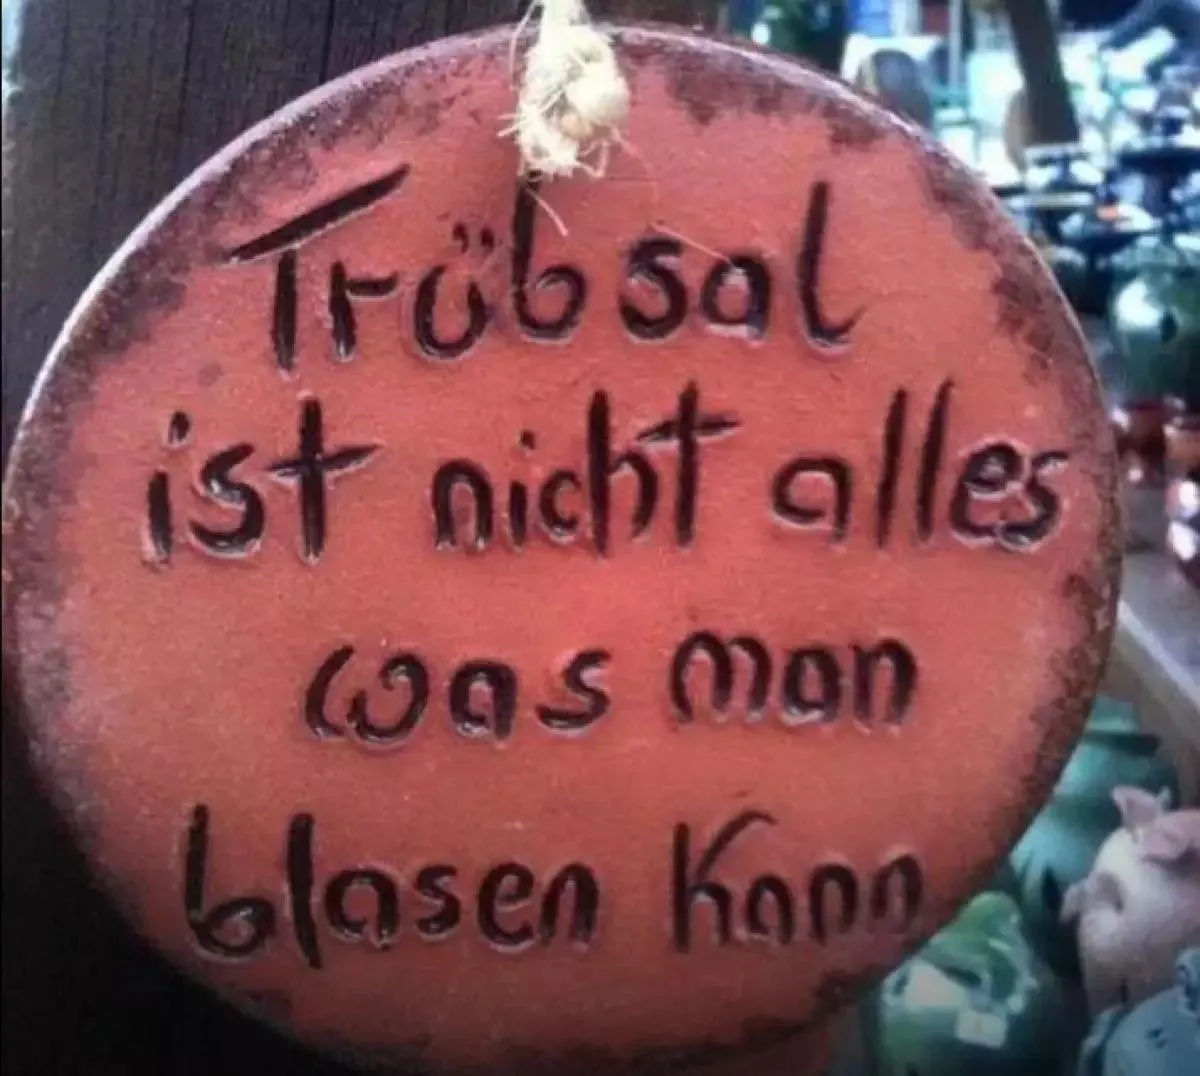 Trübsal
ist nicht alles
was man
blasen kann